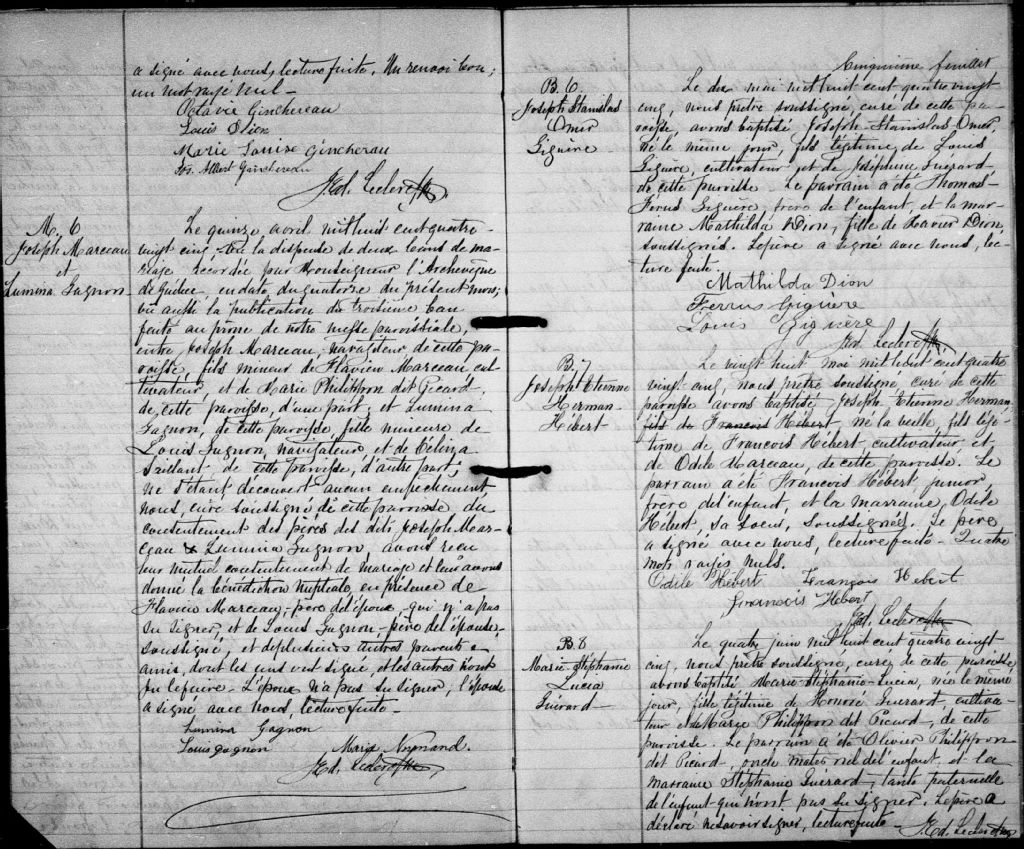 a signé avec nous, lecture faite. Un renvoi bon;
un mot rayé nul –
Octavie Ginchereau
Louis Dion
Marie Louise Gincherau
Jos. Albert Ginchereau
J. Ed. Leclerc Ptre
M. 6
Joseph Marceau
et
Lumina Gagnon
Le quinze avril mil huit cent quatre-
vingt cinq, vu la dispense de deux bans de ma-
riage accordée par Monseigneur l'Archevêque
de Québec en date du quatorze du présent mois;
vu aussi la publication du troisième ban
faite au prône de notre messe paroissiale,
entre Joseph Marceau, navigateur de cette pa-
roisse, fils mineur de Flavien Marceau cul-
tivateur, et de Marie Philippon dit Picard
de cette paroisse, d'une part; et Lumina
Gagnon, de cette paroisse, fille mineure de
Louis Gagnon, navigateur et de Célina
Vaillant de cette paroisse, d'autre part;
ne s'étant découvert aucun empêchement,
nous, curé soussigné de cette paroisse du
consentement des pères des dits Joseph Mar-
ceau & Lumina Gagnon, avons reçu
leur mutuel consentement de mariage et leur avons
donné la bénédiction nuptiale, en présence de
Flavien Marceau, père de l'époux, qui n'a pas
su signer, et de Louis Gagnon, père de l'épouse,
soussigné, et de plusieurs autres parents &
amis, dont les uns ont signé, et les autres n'ont
pu le faire. L'époux n'a pas su signer; l'épouse
a signé avec nous, lecture faite –
Lumina Gagnon
Louis gagnon Marie Normand.
J. Ed. Leclerc Ptre
Cinquième feuillet
B. 6.
Joseph Stanislas
Omer
Giguère
Le dix mai mil huit cent quatre vingt
cinq, nous prêtre soussigné, curé de cette pa-
roisse, avons baptisé Joseph-Stanislas Omer,
né le même jour, fils légitime de Louis
Giguère, cultivateur, et de Joséphine Guérard
de cette paroisse. Le parrain a été Thomas-
Férus Giguère, frère de l'enfant, et la mar-
raine Mathilda Dion, fille de Xavier Dion,
soussignés. Le père a signé avec nous, lec-
ture faite.
Mathilda Dion
Ferrus Giguère
Louis Giguère
J. Ed. Leclerc Ptre
B. 7
Joseph Etienne
Herman-
Hébert
Le vingt huit mai mil huit cent quatre
vingt-cinq, nous prêtre soussigné curé de cette
paroisse avons baptisé Joseph Etienne Herman,
fils de François Hébert, né la veille, fils légi-
time de François Hébert cultivateur et
de Odile Marceau, de cette paroisse. Le
parrain a été François Hébert junior,
frère de l'enfant, et la marraine, Odile
Hébert, sa soeur, soussignés. Le père
a signé avec nous, lecture faite – Quatre
mots rayés nuls.
Odile Hébert François Hebert
François Hébert
J. Ed. Leclerc Ptre
B. 8
Marie-Stéphanie
Lucia
Guérard
Le quatre juin mil huit cent quatre vingt
cinq, nous prêtre soussigné, curé de cette paroisse
avons baptisé Marie-Stéphanie-Lucia, née le même
jour, fille légitime de Honoré Guérard cultiva-
teur et de Marie Philippon dit Picard, de cette
paroisse. Le parrain a été Olivier Philippon
dit Picard, oncle maternel de l'enfant, et la
marraine Stéphanie Guérard, tante paternelle
de l'enfant qui n'ont pas su signer. Le père a
déclaré ne savoir signer, lecture faite –
J. Ed. Leclerc Ptre